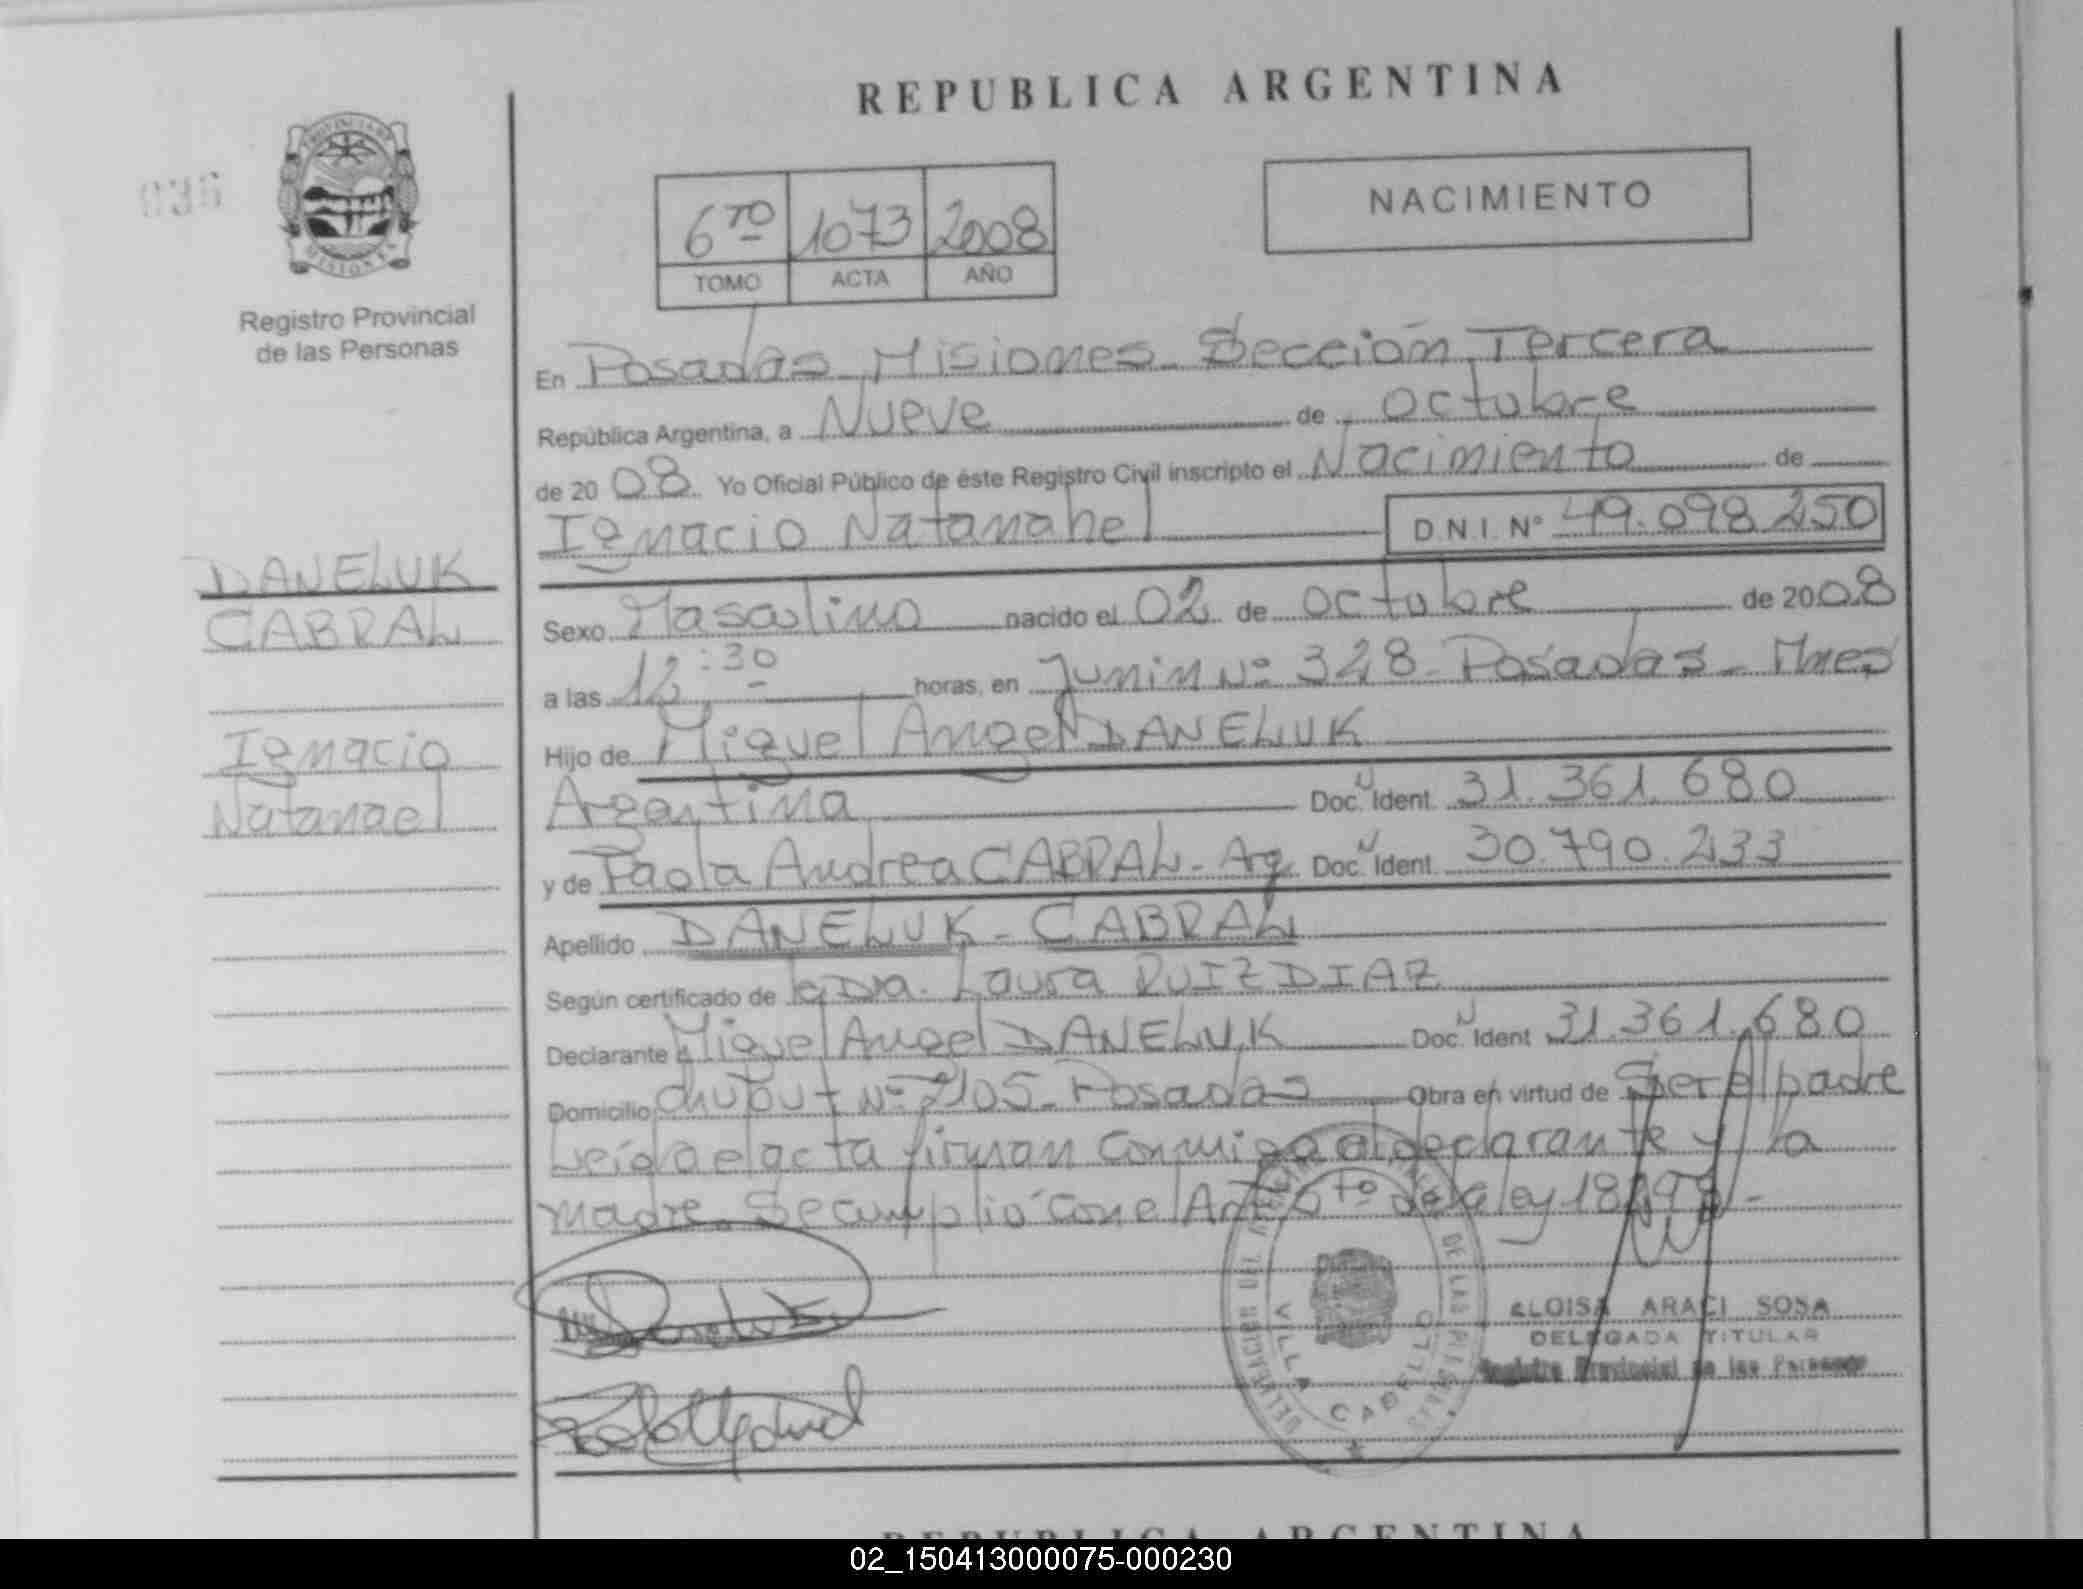 REPUBLICA ARGENTINA
036
PROVINCIA DE MISIONES
Registro Provincial
de las Personas
6TO 1073 2008
TOMO ACTA AÑO
NACIMIENTO
En Posadas Misiones Sección Tercera
República Argentina, a Nueve de octubre
de 2008 Yo Oficial Público de éste Registro Civil inscripto el Nacimiento de
Ignacio Natanahel D.N.I. Nº 49.098.250
DANELUK
CABRAL
Ignacio
Natanael
Sexo Masculino nacido el 02 de octubre de 2008
a las 12:30 horas, en Junin Nº 328 - Posadas - Mnes
Hijo de Miguel Angel DANELUK
Argentina Doc. Ident. 31.361.680
y de Paola Andrea CABRAL - Arg. Doc. Ident. 30.790.233
Apellido DANELUK - CABRAL
Según certificado de Laura RUIZ DIAZ
Declarante Miguel Angel DANELUK Doc. Ident 31.361.680
Domicilio chubut Nº 2105 - Posadas Obra en virtud de Ser el padre
Leída el acta firman conmigo el declarante y la
madre. Se cumplió con el Art. de la ley
VILLA CABELLO
ELOISA ARACI SOSA
DELEGADA TITULAR
Registro Provincial de las Personas
REPUBLICA ARGENTINA
02_150413000075-000230